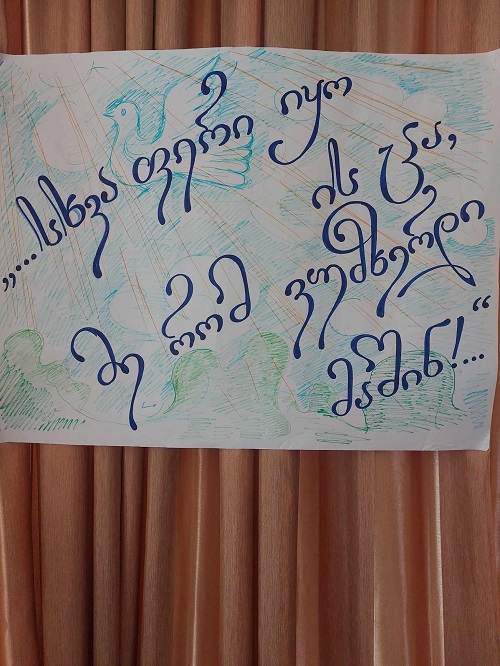 „...სხვა ფერი იყო
ის ცა,
მე რომ ვუმზერდი
მაშინ!...“